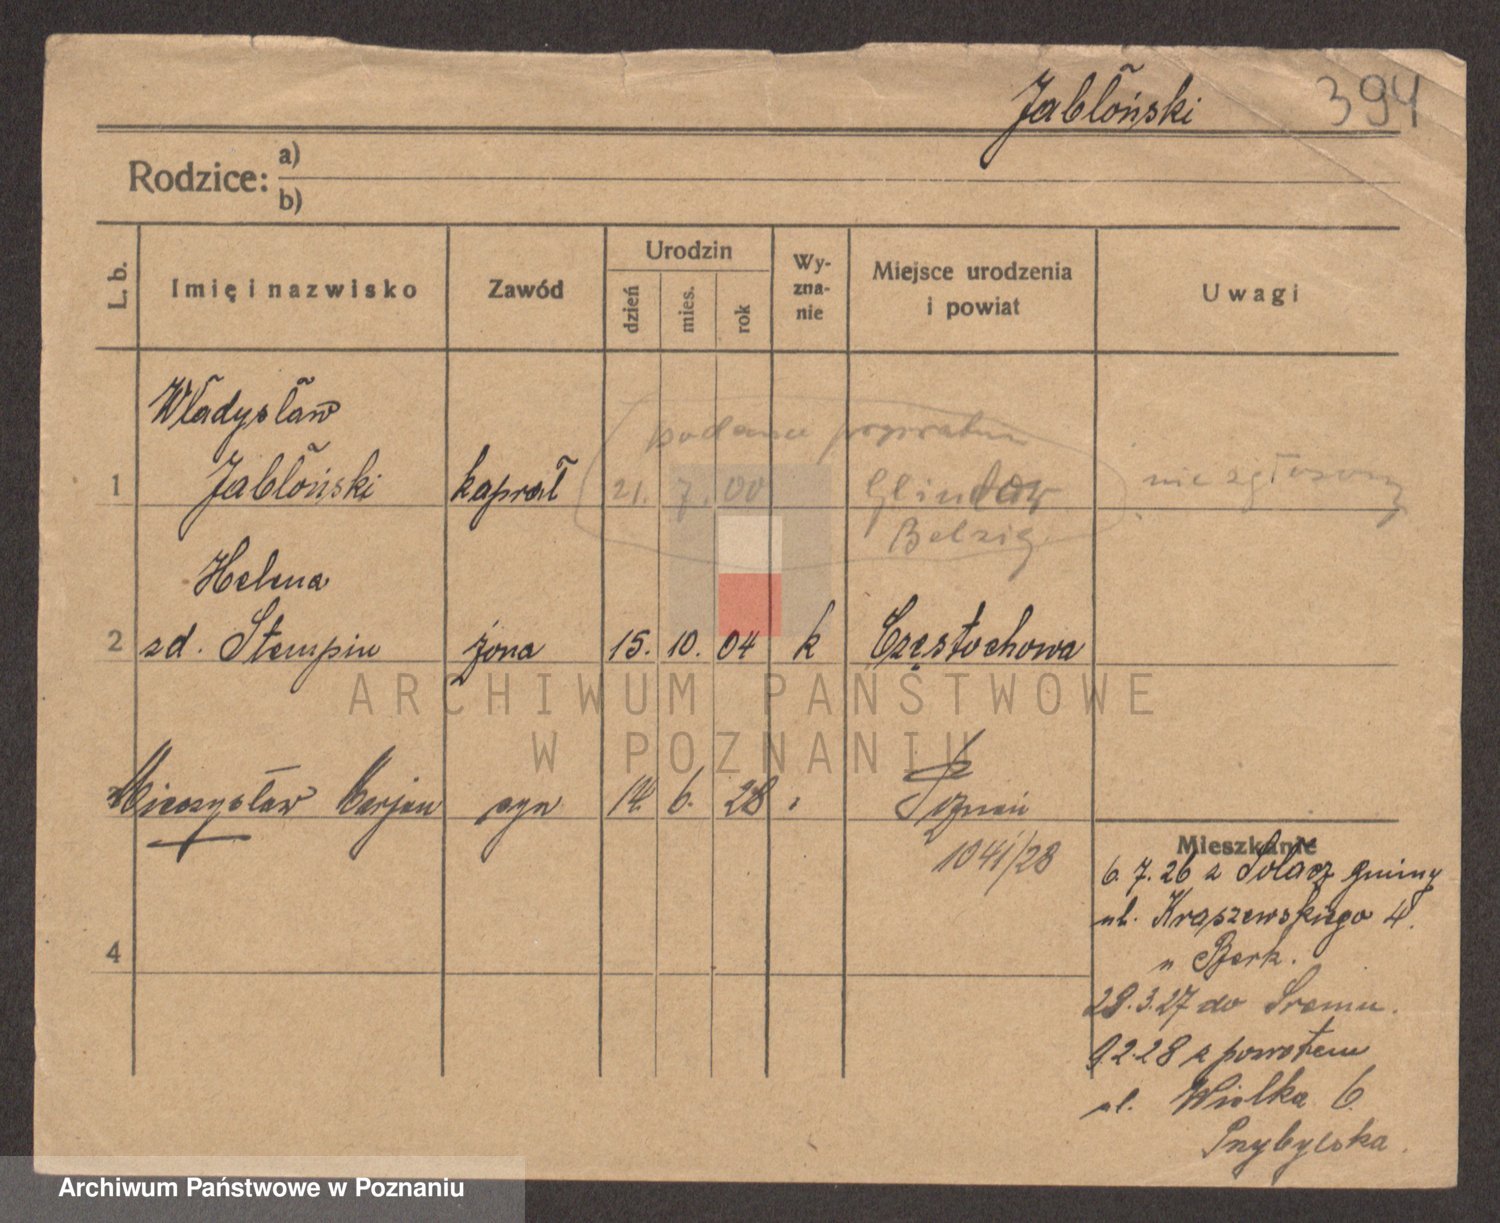 Jabłoński 394
Rodzice: a)
b)
L. b. Imię i nazwisko Zawód Urodzin dzień mies. rok Wy-zna-nie Miejsce urodzenia i powiat Uwagi
Władysław
1 Jabłoński kapral 21. 7. 00 Glindow nie zgłoszony
Belzig
Helena
2 zd. Stempin żona 15. 10. 04 k Częstochowa
ARCHIWUM PAŃSTWOWE
W POZNANIU
Mieczysław Marjan syn 14. 6. 28 Poznań
1041/28
Mieszkanie
6. 7. 26 z Sołacz gminy
ul. Kraszewskiego 4.
4
28. 3. 27 do Śremu.
9.2.28 z powrotem
ul. Wielka 6
Przybylska.
Archiwum Państwowe w Poznaniu